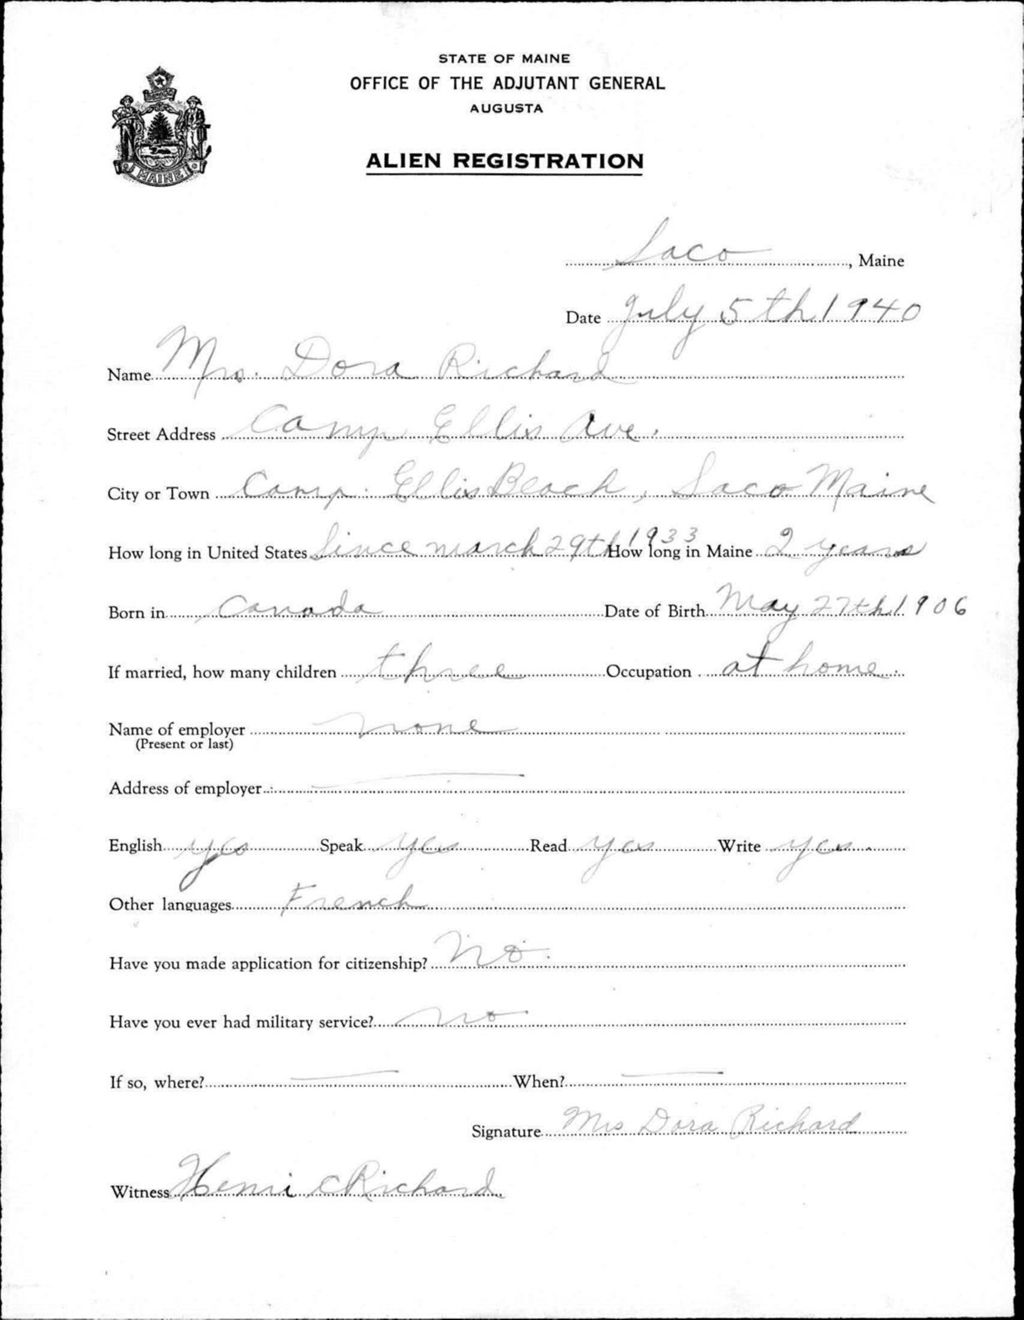 STATE OF MAINE
OFFICE OF THE ADJUTANT GENERAL
AUGUSTA
ALIEN REGISTRATION
MAINE
Saco, Maine
Date July 5th 1940
Name Mrs. Dora Richard
Street Address Camp Ellis Ave.
City or Town Camp Ellis Beach, Saco Maine
How long in United States Since march 29th 1933 How long in Maine 2 years
Born in Canada Date of Birth May 27th 1906
If married, how many children three Occupation at home
Name of employer none
(Present or last)
Address of employer
English yes Speak yes Read yes Write yes
Other languages French
Have you made application for citizenship? No.
Have you ever had military service? no
If so, where? When?
Signature Mrs Dora Richard
Witness Henri C Richard